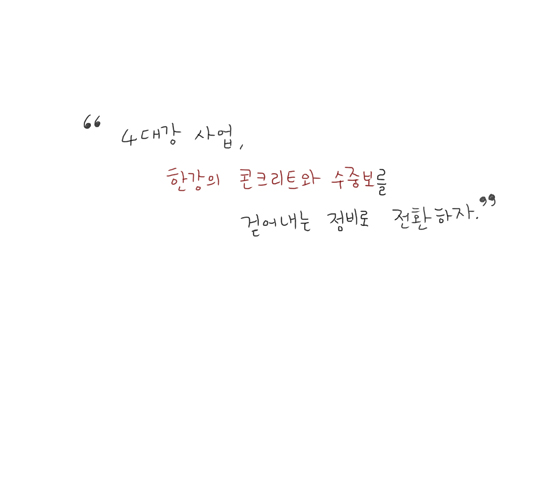 “4대강 사업,
한강의 콘크리트와 수중보를
걷어내는 정비로 전환하자.”